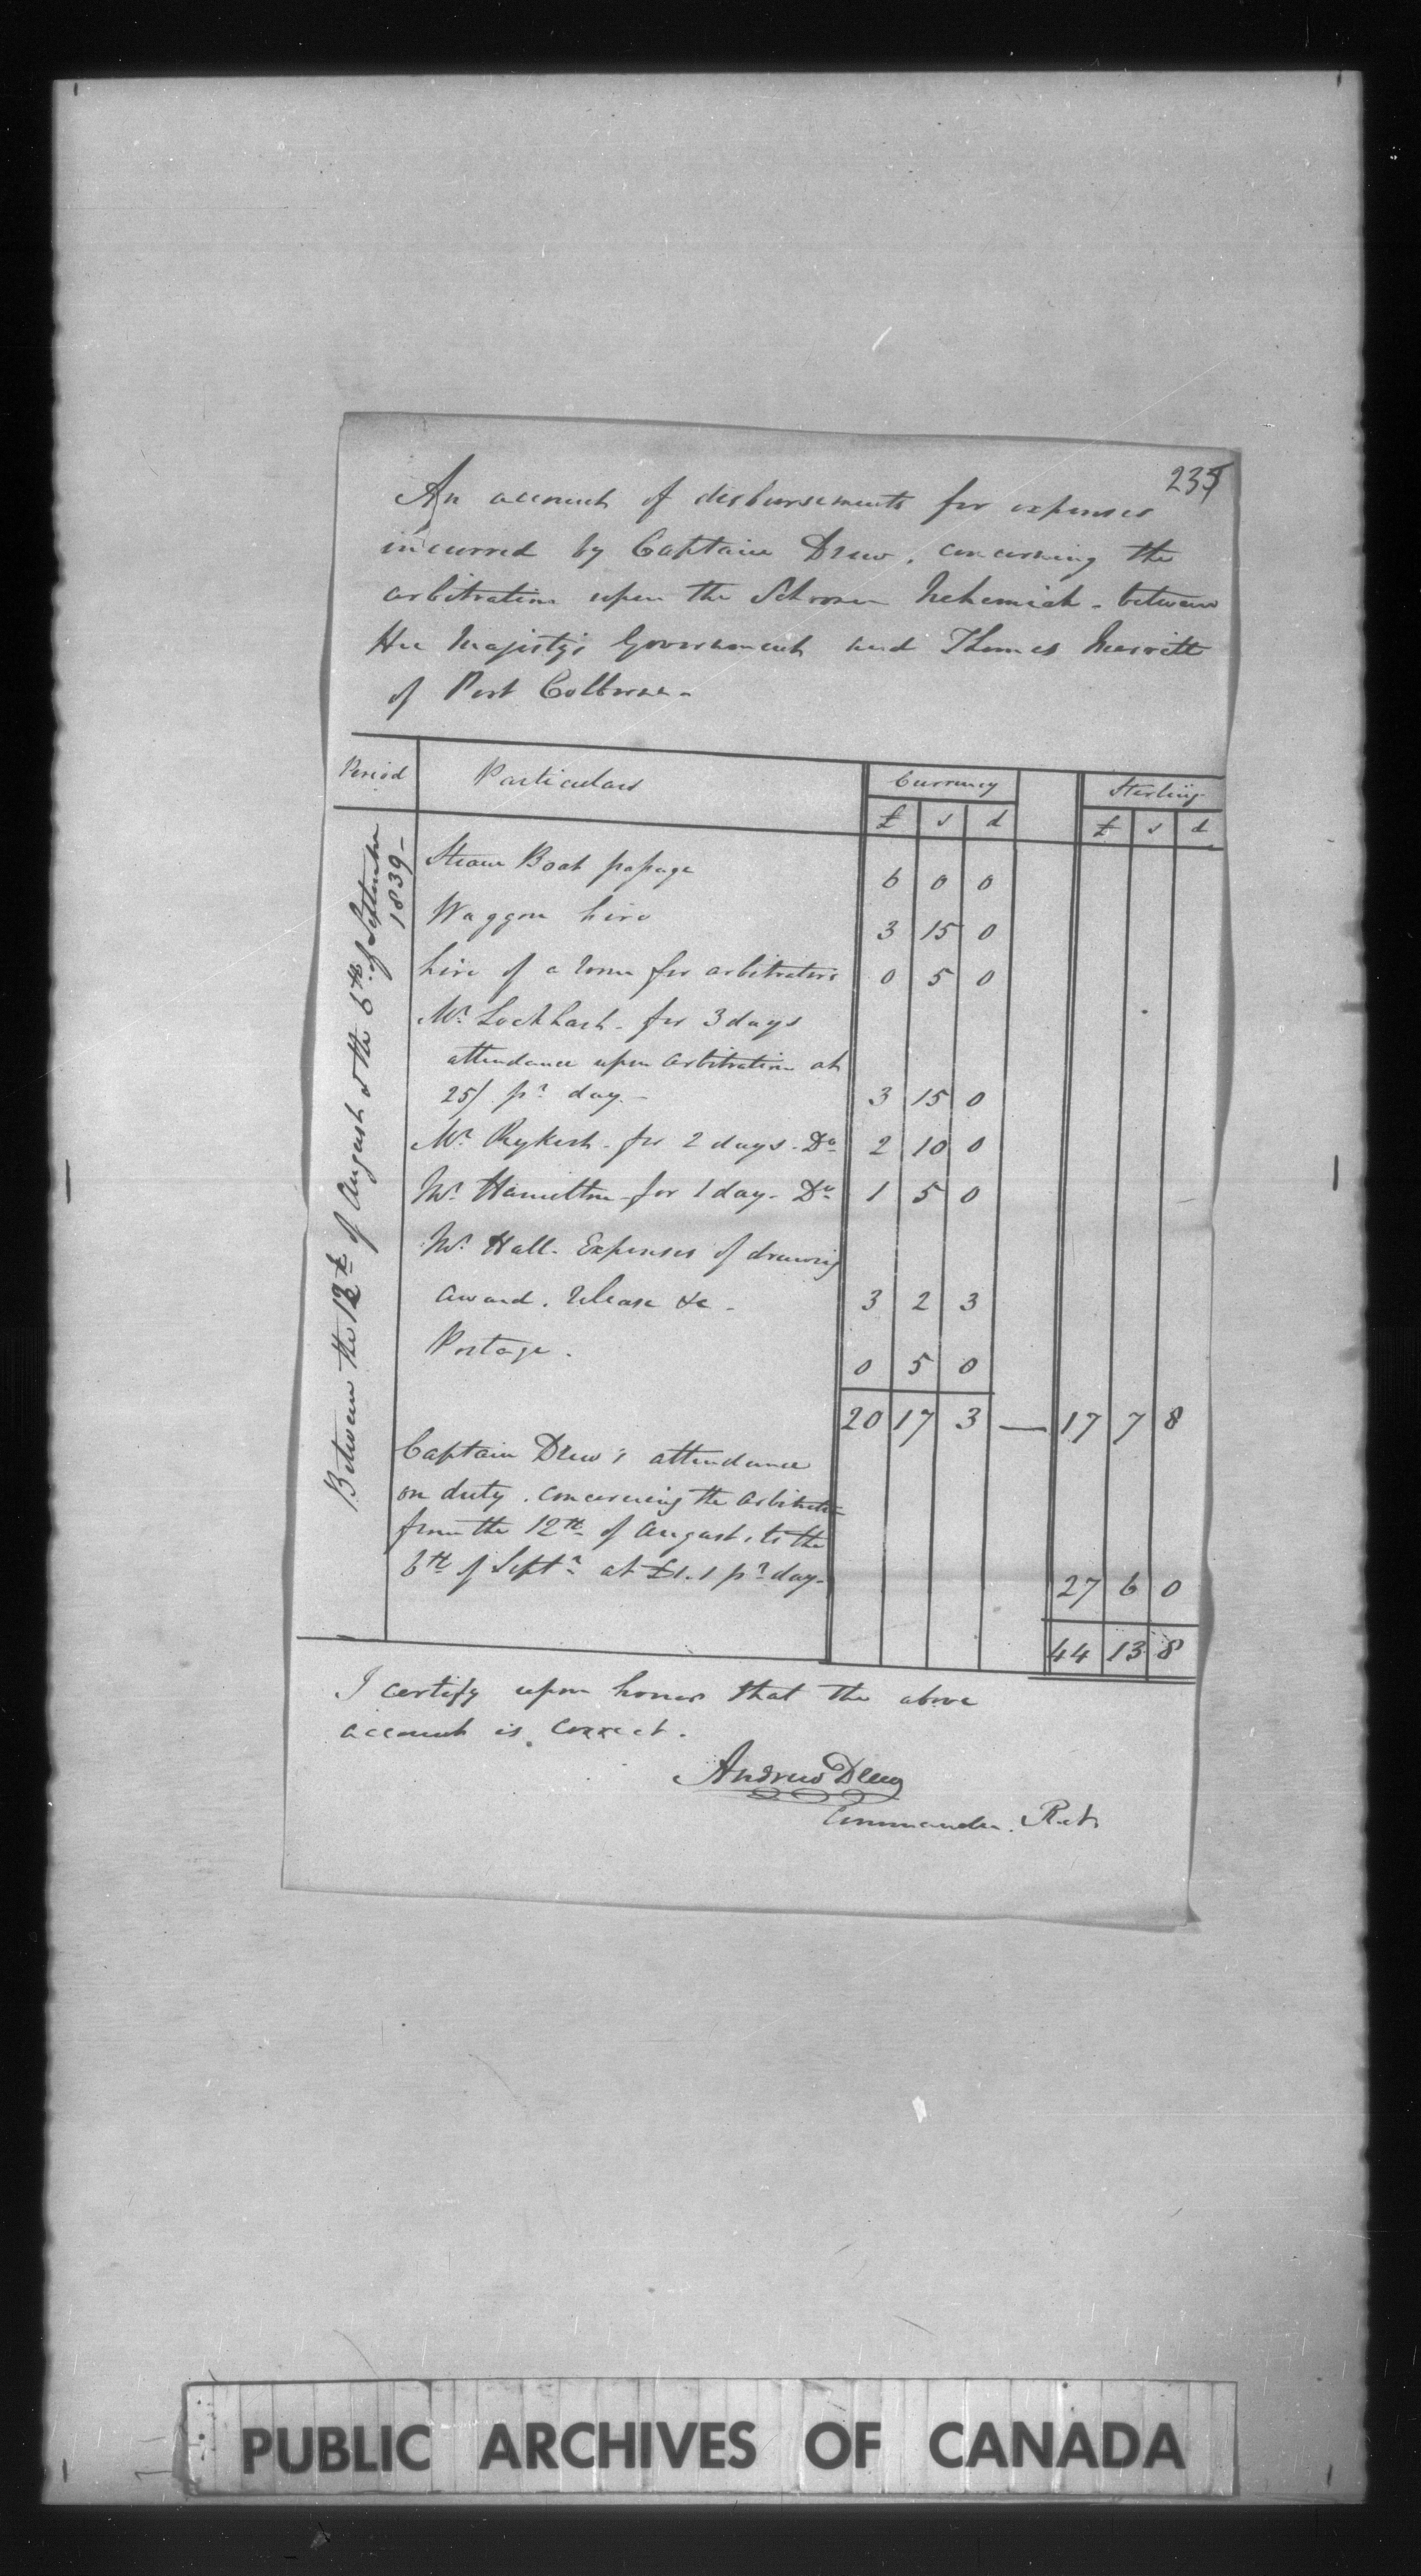 235
An account of disbursements for expenses
incurred by Captain Drew, concerning the
arbitration upon the Schooner Nehemiah - between
Her Majesty's Government and Thomas Merritt
of Port Colborne -
Period Particulars Currency Sterling
£ s d £ s d
Between the 12th of August & the 6th of September
1839 -
Steam Boat passage 6 0 0
Waggon hire 3 15 0
hire of a room for arbitrators 0 5 0
Mr. Lockhart - for 3 days
attendance upon arbitration at
25/ pr day - 3 15 0
Mr. Rykert - for 2 days - Do 2 10 0
Mr. Hamilton - for 1 day - Do 1 5 0
Mr. Hall - Expenses of drawing
award, release &c - 3 2 3
Postage . 0 5 0
20 17 3 — 17 7 8
Captain Drew's attendance
on duty, concerning the arbitration
from the 12th of August, to the
6th of Septr at £1.1 pr day - 27 6 0
44 13 8
I certify upon honor that the above
account is correct.
Andrew Drew
Commander. R.N.
PUBLIC ARCHIVES OF CANADA